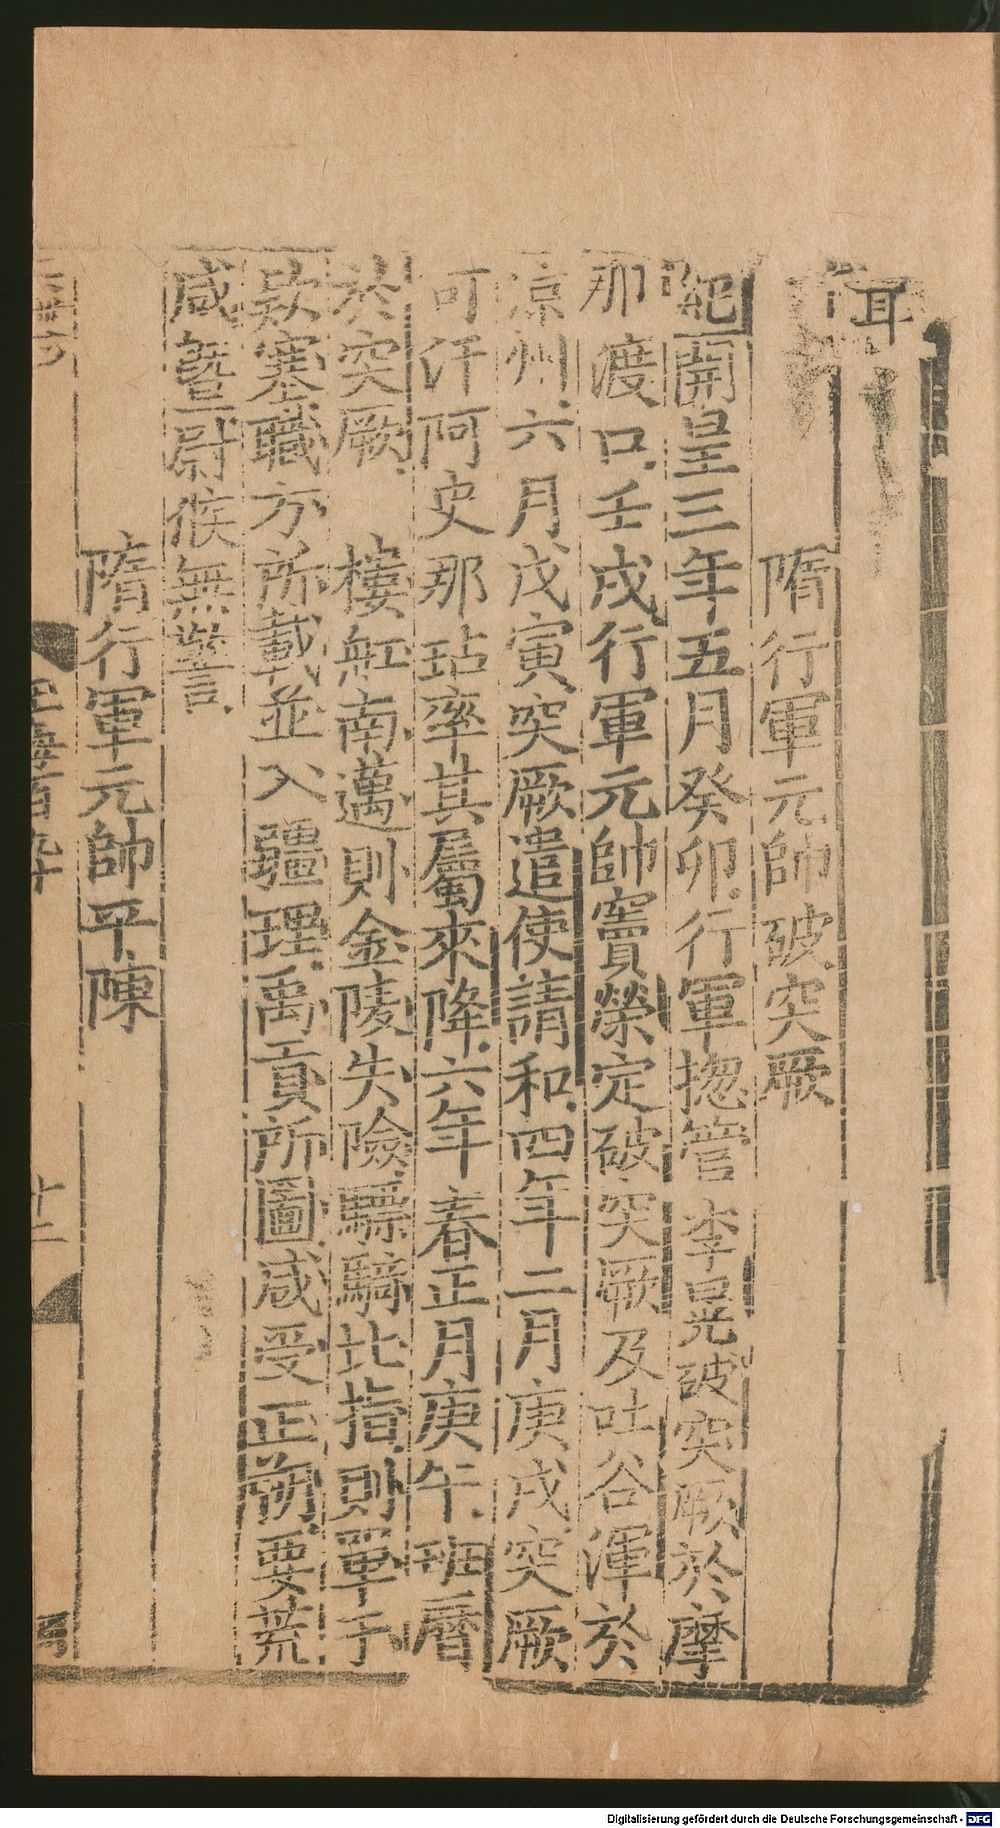 耳
隋行軍元帥破突厥
紀開皇三年五月癸卯行軍揔管李晃破突厥於摩
那渡口壬戌行軍元帥竇榮定破突厥及吐谷渾於
涼州六月戊寅突厥遣使請和四年二月庚戌突厥
可汗阿史那玷率其屬來降六年春正月庚午班曆
於突厥 樓舡南邁則金陵失險驃騎北指則單于
欵塞職方所載並入疆理禹貢所圖咸受正朔要荒
咸曁尉候無警
隋行軍元帥平陳
百九十
十二
Digitalisierung gefördert durch die Deutsche Forschungsgemeinschaft - DFG